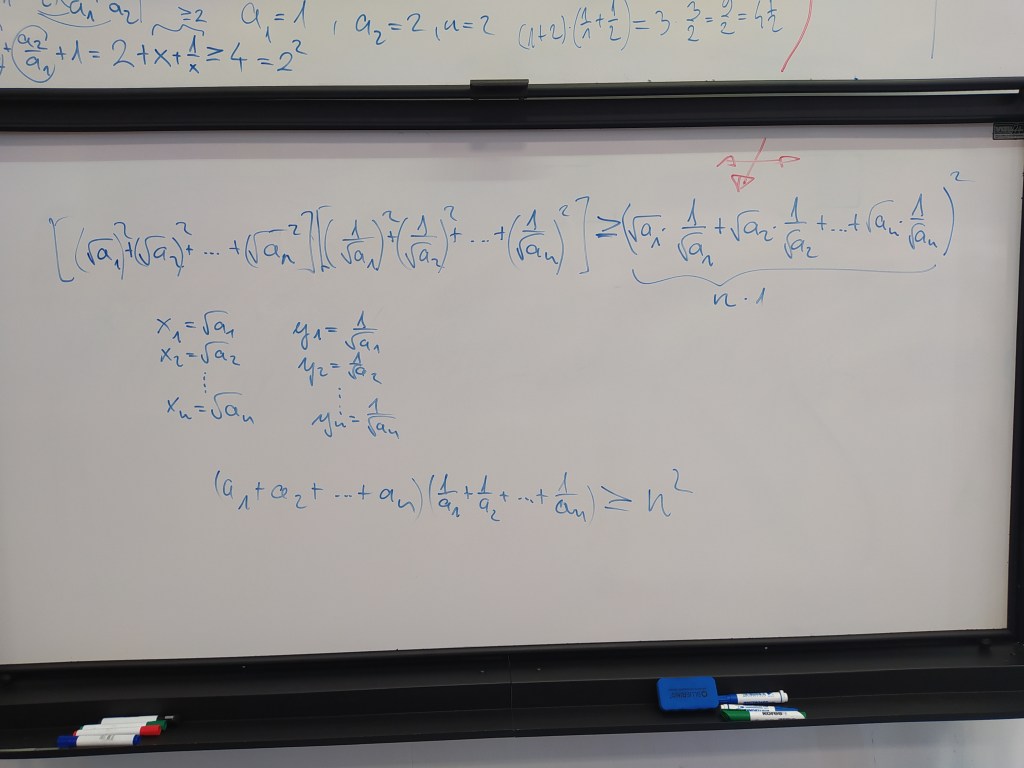 a₁ = 1 , a₂ = 2 , n = 2 (1+2)·(1/1 + 1/2) = 3 · 3/2 = 9/2 = 4 1/2
≥2
a₂/a₁ + 1 = 2 + x + 1/x ≥ 4 = 2²
[(√a₁)² + (√a₂)² + ... + (√aₙ)²][(1/√a₁)² + (1/√a₂)² + ... + (1/√aₙ)²] ≥ (√a₁ · 1/√a₁ + √a₂ · 1/√a₂ + ... + √aₙ · 1/√aₙ)²
n · 1
x₁ = √a₁ y₁ = 1/√a₁
x₂ = √a₂ y₂ = 1/√a₂
⋮ ⋮
xₙ = √aₙ yₙ = 1/√aₙ
(a₁ + a₂ + ... + aₙ)(1/a₁ + 1/a₂ + ... + 1/aₙ) ≥ n²